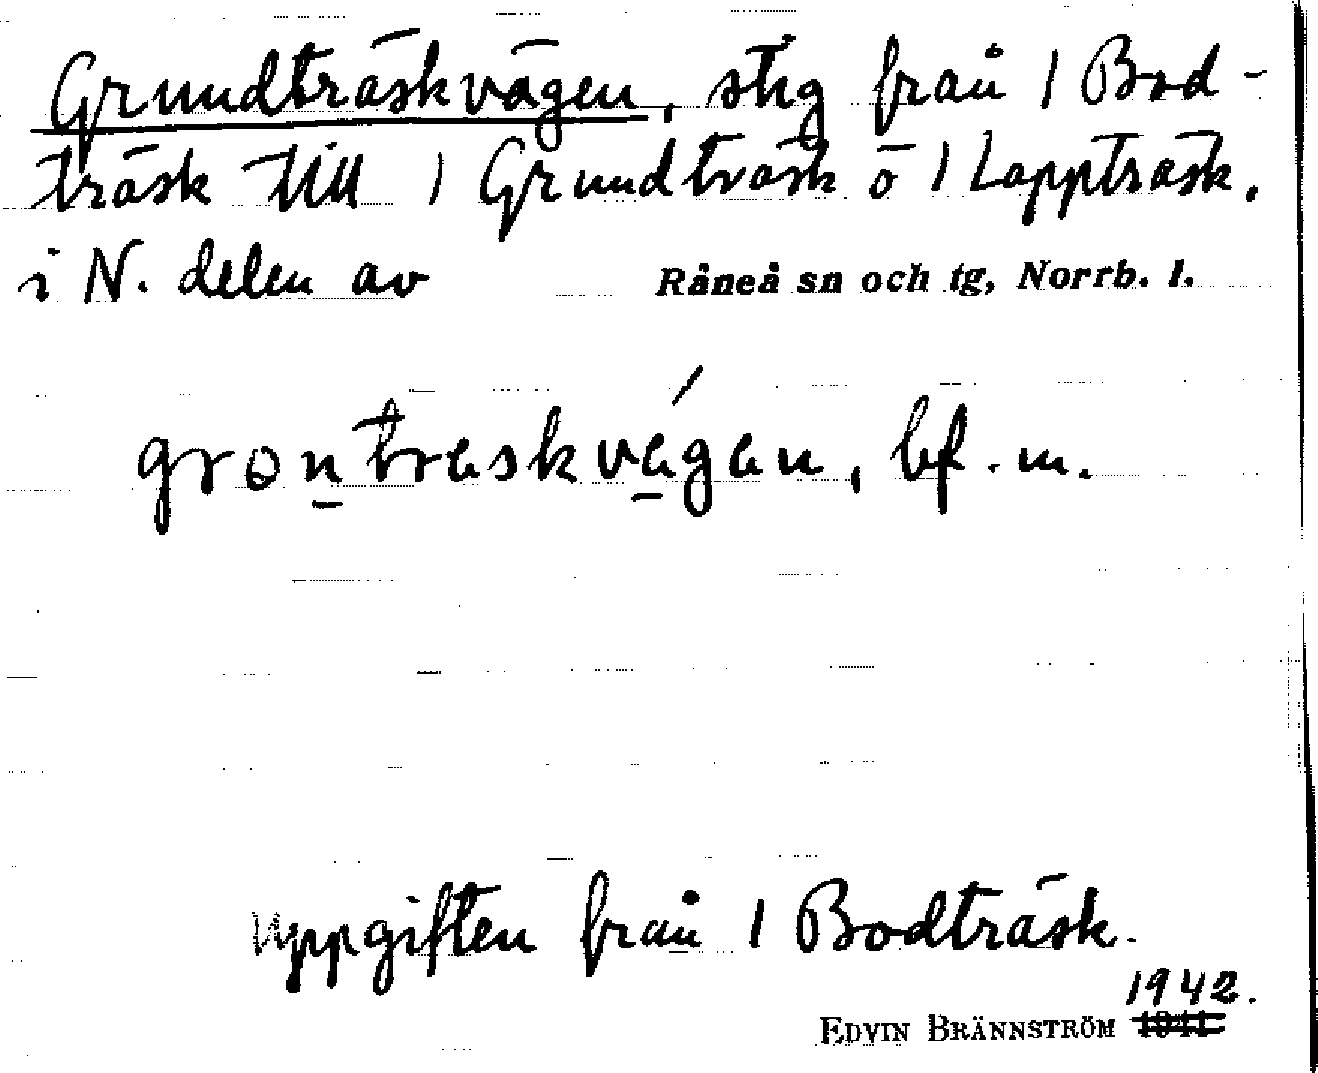 Grundträskvägen, stig från 1 Bod-
träsk till 1 Grundträsk o 1 Lappträsk.
i N. delen av Råneå sn och tg, Norrb. l.
gronträskvägen, bf. m.
Uppgiften från 1 Bodträsk.
1942.
EDVIN BRÄNNSTRÖM 1941